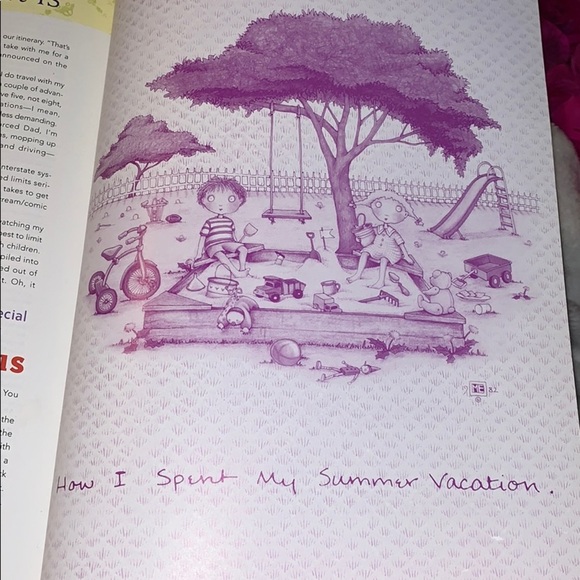 IS
our itinerary. "That's
take with me for a
announced on the
do travel with my
couple of advan-
ve five, not eight,
ations—I mean,
less demanding.
rced Dad, I'm
s, mopping up
and driving—
nterstate sys-
ed limits seri-
takes to get
ream/comic
atching my
est to limit
h children.
piled into
ed out of
t. Oh, it
ecial
us
You
the
the
ith
a
ck
ME
82
©
How I Spent My Summer Vacation.